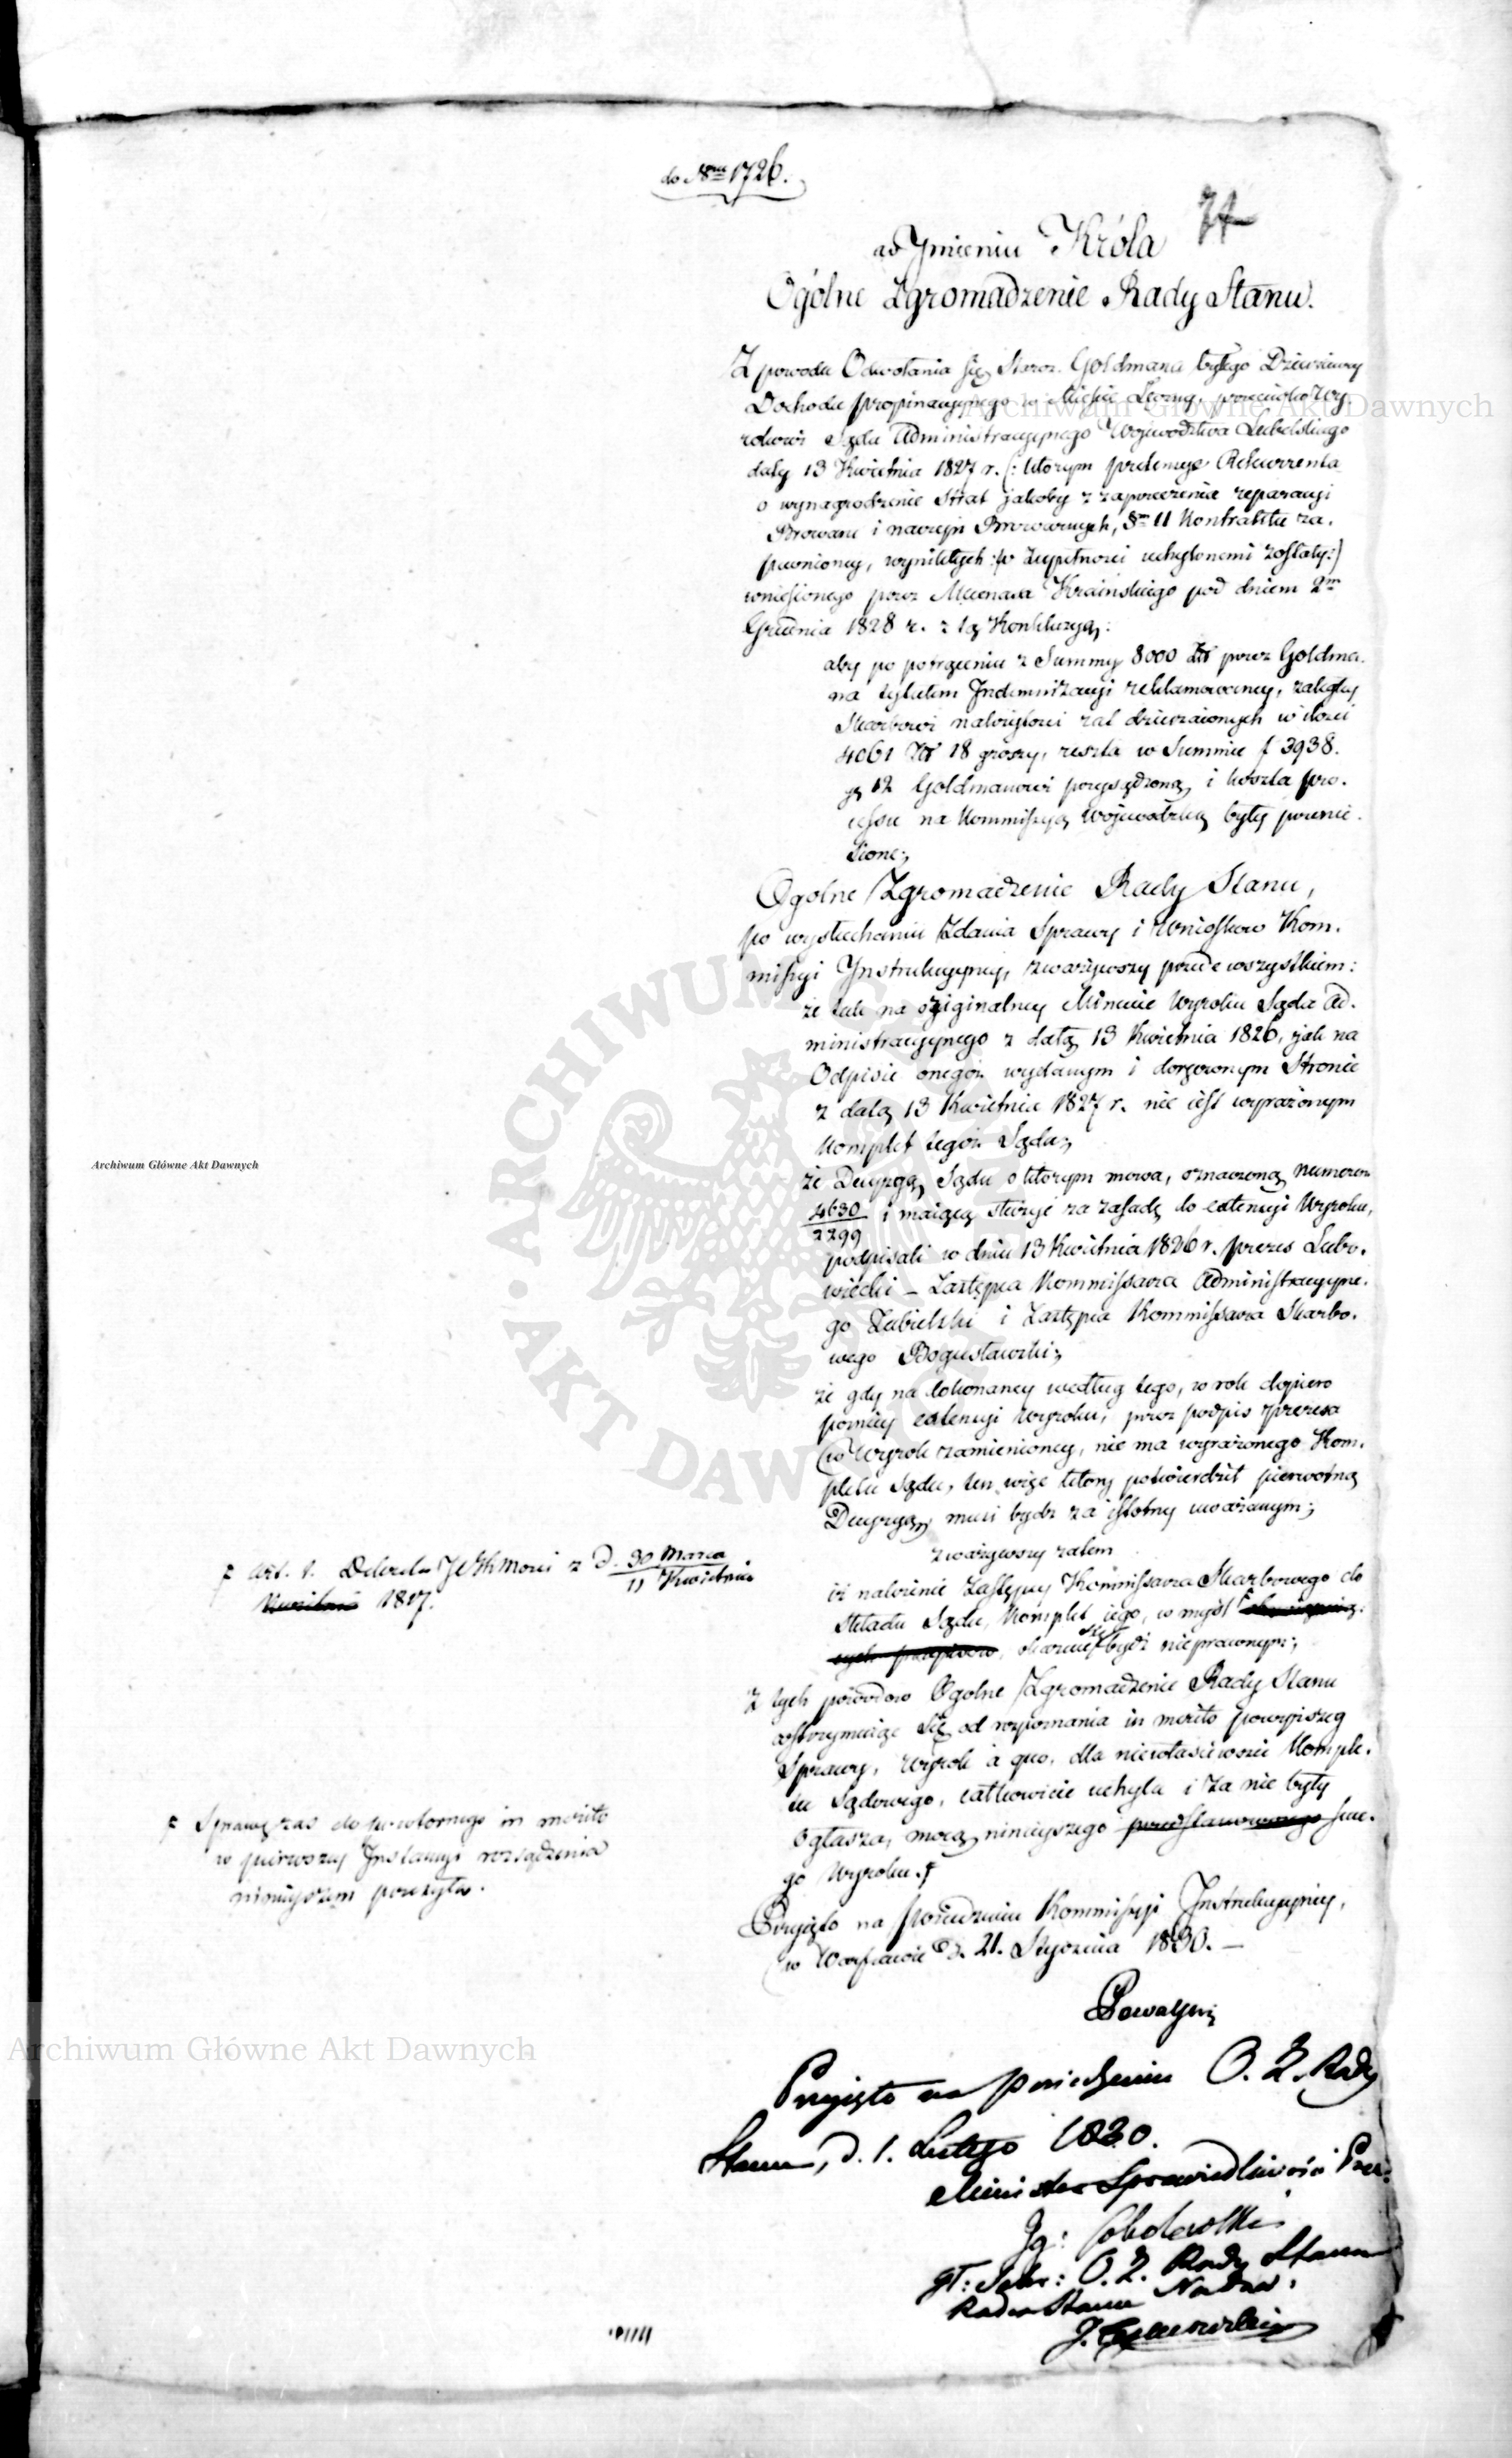 do Nru 1726.
74
w Ymieniu Króla
Ogólne Zgromadzenie Rady Stanu.
Z powodu Odwołania się Staroz. Goldmana byłego Dzierżawcy
Dochodu propinacyjnego w Mieście Łęczny, przeciwko Wy-
rokowi Sądu Administracyjnego Województwa Lubelskiego
daty 13 Kwietnia 1827 r. (: którym pretensye Rekurrenta
o wynagrodzenie Strat jakoby z zaprzeczenia reparacyi
Browaru i naczyń Browarnych, §m 11 Kontraktu za-
pewnioney, wynikłych w zupełności uchylonemi zostały :)
wniesionego przez Mecenasa Kraińskiego pod dniem 2m
Grudnia 1828 r. z tą Konkluzyą:
aby po potrąceniu z Summy 8000 Zł przez Goldma-
na tytułem Indemnizacyi reklamowaney, zaległey
Skarbowi należytości rat dzierżawnych w ilości
4061 Zł 18 groszy, reszta w Summie f 3938.
g 12 Goldmanowi przysądzoną i koszta pro-
cessu na Kommissyą Wojewodzką były przenie-
sione;
Ogolne Zgromadzenie Rady Stanu,
po wysłuchaniu Zdania Sprawy i Wniosków Kom-
missyi Instrukcyjney, zważywszy przede wszystkiem:
że tak na oryginalney Minucie Wyroku Sądu Ad-
ministracyjnego z datą 13 Kwietnia 1826, jak na
Odpisie onegoż wydanym i doręczonym Stronie
z datą 13 Kwietnia 1827 r. nie iest wyrażonym
Komplet tegoż Sądu;
że Decyzyą Sądu o którym mowa, oznaczoną numerem
4630
2299 i maiącą służyć za zasadę do extensyi Wyroku,
podpisali w dniu 13 Kwietnia 1826 r. Prezes Lubo-
wiecki – Zastępca Kommissarza Administracyjne-
go Zubielski i Zastępca Kommissarza Skarbo-
wego Bogusławski;
że gdy na dokonaney według tego, w rok dopiero
późniey extensyi Wyroku, przez podpis Prezesa
w Wyrok zamienioney, nie ma wyrażonego Kom-
pletu Sądu, ten więc który potwierdził pierwotną
Decyzyą, musi bydź za istotny uważanym;
zważywszy zatem
iż należenie Zastępcy Kommissarza Skarbowego do
Składu Sądu, Komplet iego, w myśl f
się
okazuie bydź nieprawnym;
f art. 1. Dekretu JKMości z d. 30 Marca
11 Kwietnia
Kwietnia 1817.
Z tych powodow Ogolne Zgromadzenie Rady Stanu
wstrzymuiąc się od rozpoznania in merito powyższey
Sprawy, Wyrok a quo, dla niewłaściwości Komple-
tu Sądowego, całkowicie uchyla i za nie były
Ogłasza, mocą ninieyszego swe-
go Wyroku. f
f Sprawę zaś do powtornego in merito
w pierwszey Instancyi rozsądzenia
ninieyszem przesyła.
Przyięto na Posiedzeniu Kommissyi Instrukcyjney,
w Warszawie d. 21. Stycznia 1830. –
Przyięto na posiedzeniu O. Z. Rady
Stanu, d. 1. Lutego 1830.
Minister Sprawiedliwości Prez:
Ig: Sobolewski
O. Z. Rady Stanu
Radca Stanu Nadzw.
Archiwum Główne Akt Dawnych
Archiwum Główne Akt Dawnych
Archiwum Główne Akt Dawnych
ARCHIWUM GŁÓWNE • AKT DAWNYCH